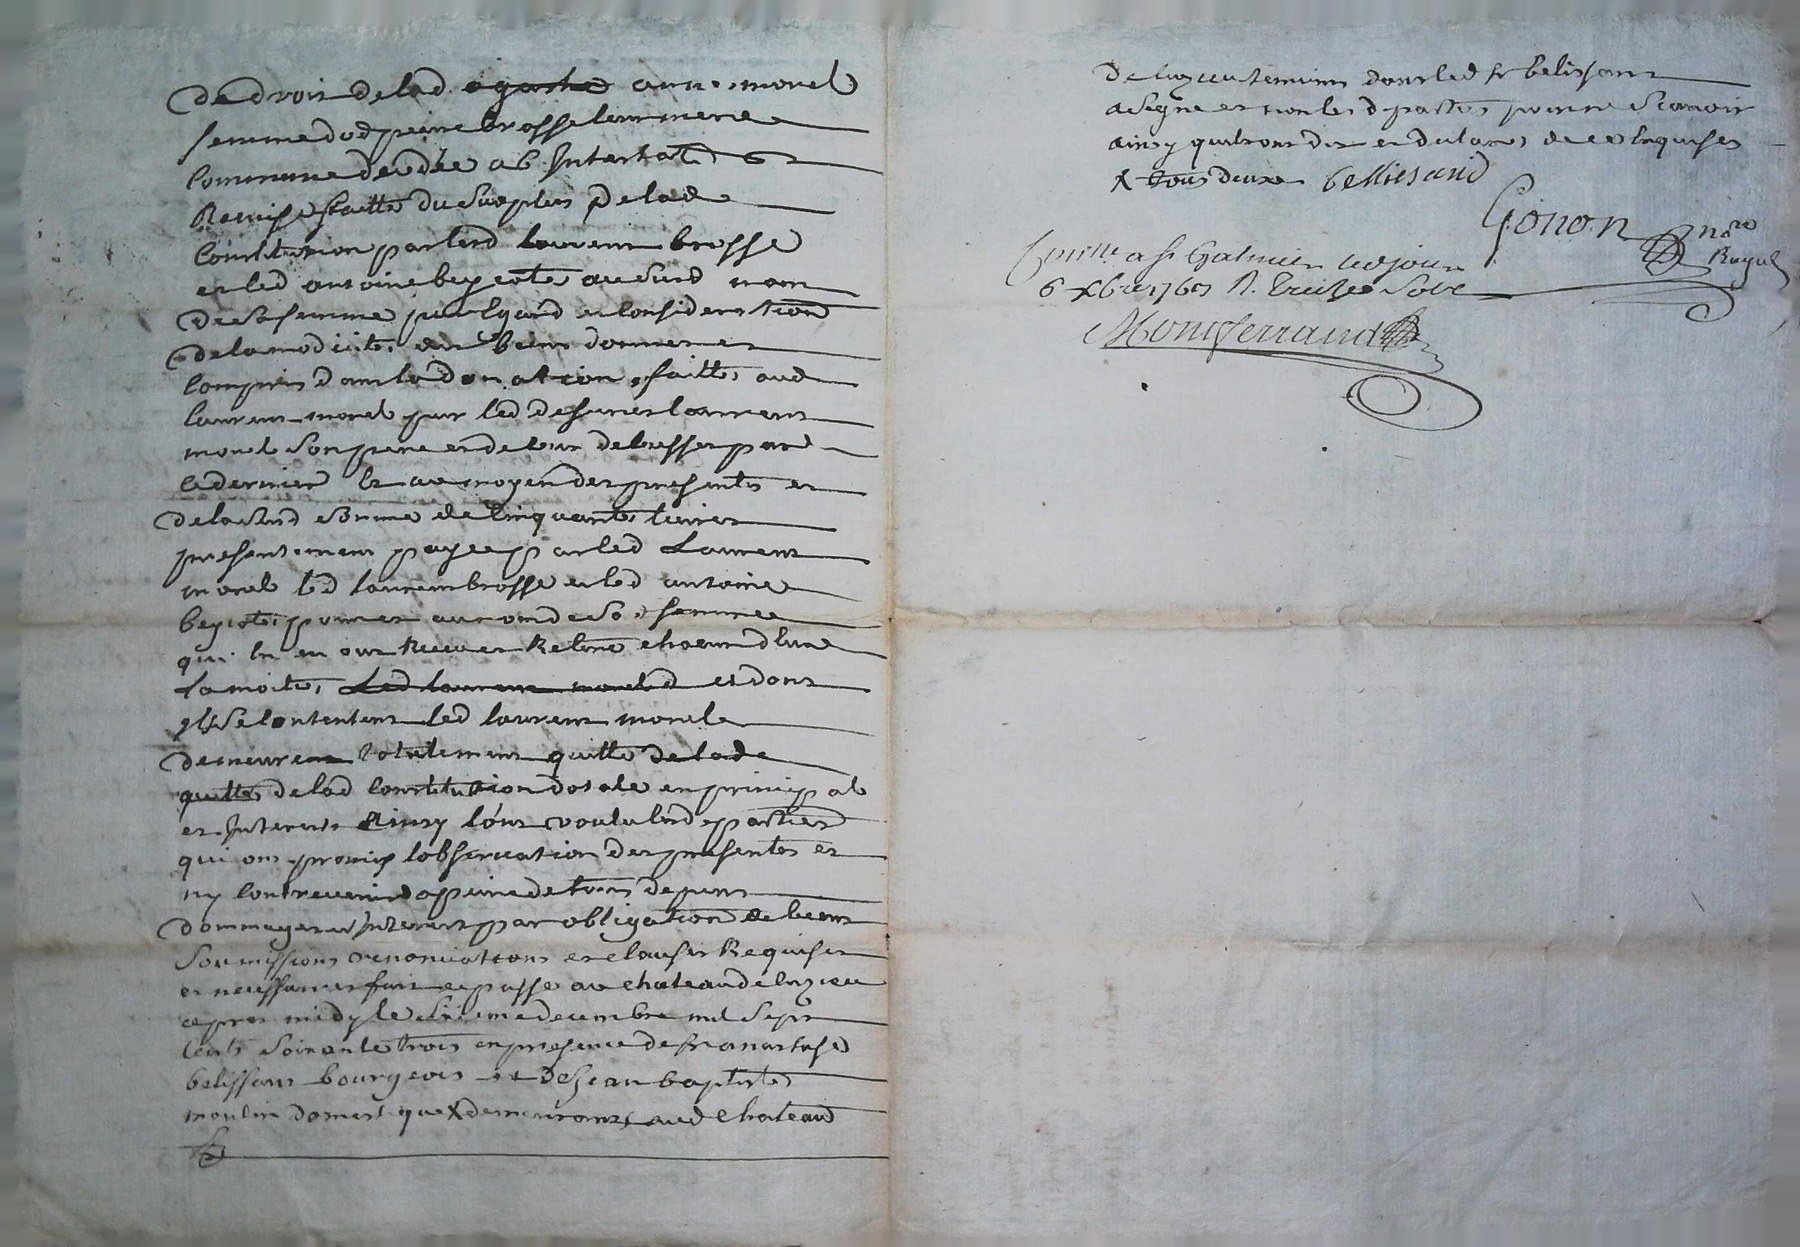 de droit de lad agathe anne morel
femme dud pierre brosse leur mere
comme decedée ab Intestate et
Remise faitte du surplus de lad
constitution par lesd laurent brosse
et led antoine beycotte aud nom
de sa femme par Egard et consideration
de la modicité des biens donnes et
compris dans la donation faitte aud
laurent morel par led deffunt laurent
morel son pere et de leur delaisser par
ce dernier et au moyen des presentes et
de lad somme de cinquante livres
presentement payee par led Laurent
morel led laurent brosse et led antoine
au nom de sa femme
qui en ont Receu et Retiré chacun d'eux
la moitié, Led laurent morel et dont
ils se contentent led laurent morel
demeurera totalement quitte de lade
quitte de lad constitution dotale en principal
et Interests Ainsy l'ont voulu lesd parties
qui ont promis lobservation des presentes et
ny contrevenir a peine de tous depens
dommages et Interests par obligation de biens
soumissions renonciations et clauses Requises
et necessaires fait et passé au chateau de
apres midy le sixieme decembre mil sept
cents soixante trois en presence de sr anastase
belissant bourgeois et de Jean baptiste
moulin domestique X demeurants aud chateau
de dont led sr belissant
a signé et non les d parties pour ne scavoir
ainsy quils ont dit et de ce Enquises
X tous deux bellissand
Gonon nore
Royal
Contlle a St Galmier ce jour
6 xbre 1763 R. treize sols
Montferrand